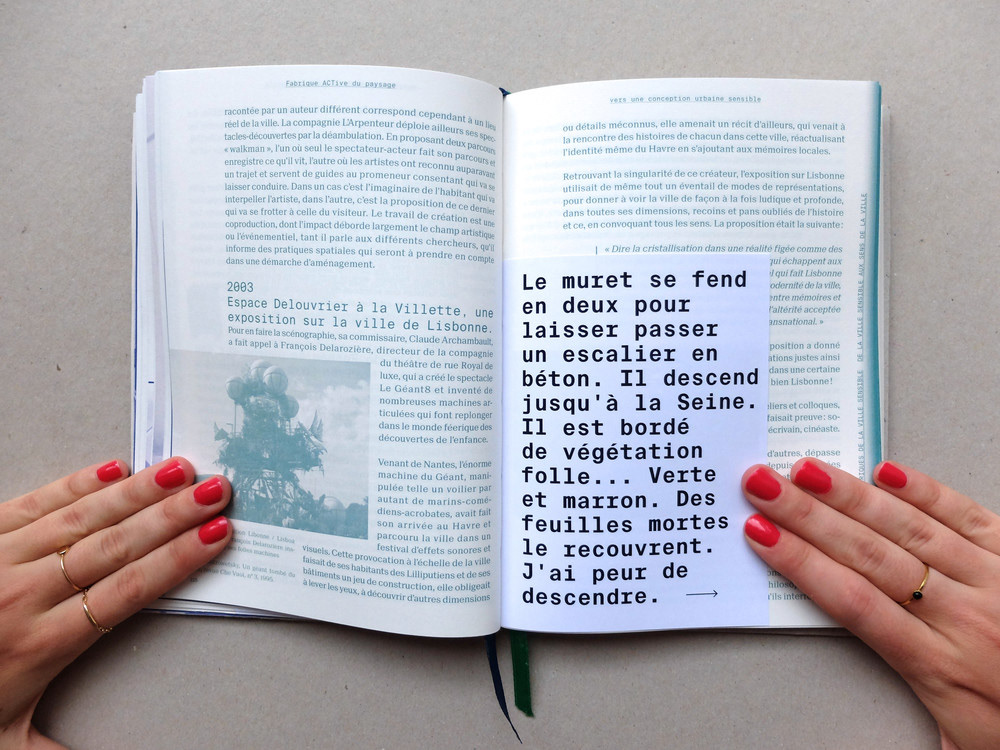 Fabrique ACTive du paysage
racontée par un auteur différent correspond cependant à un lieu
réel de la ville. La compagnie L'Arpenteur déploie ailleurs ses spec-
tacles-découvertes par la déambulation. En proposant deux parcours
« walkman », l'un où seul le spectateur-acteur fait son parcours et
enregistre ce qu'il vit, l'autre où les artistes ont reconnu auparavant
un trajet et servent de guides au promeneur consentant qui va se
laisser conduire. Dans un cas c'est l'imaginaire de l'habitant qui va
interpeller l'artiste, dans l'autre, c'est la proposition de ce dernier
qui va se frotter à celle du visiteur. Le travail de création est une
coproduction, dont l'impact déborde largement le champ artistique
ou l'événementiel, tant il parle aux différents chercheurs, qu'il
informe des pratiques spatiales qui seront à prendre en compte
dans une démarche d'aménagement.
2003
Espace Delouvrier à la Villette, une
exposition sur la ville de Lisbonne.
Pour en faire la scénographie, sa commissaire, Claude Archambault,
a fait appel à François Delarozière, directeur de la compagnie
du théâtre de rue Royal de
luxe, qui a créé le spectacle
Le Géant8 et inventé de
nombreuses machines ar-
ticulées qui font replonger
dans le monde féerique des
découvertes de l'enfance.
Venant de Nantes, l'énorme
machine du Géant, mani-
pulée telle un voilier par
autant de marins-comé-
diens-acrobates, avait fait
son arrivée au Havre et
parcouru la ville dans un
festival d'effets sonores et
visuels. Cette provocation à l'échelle de la ville
faisait de ses habitants des Lilliputiens et de ses
bâtiments un jeu de construction, elle obligeait
à lever les yeux, à découvrir d'autres dimensions
vers une conception urbaine sensible
ou détails méconnus, elle amenait un récit d'ailleurs, qui venait à
la rencontre des histoires de chacun dans cette ville, réactualisant
l'identité même du Havre en s'ajoutant aux mémoires locales.
Retrouvant la singularité de ce créateur, l'exposition sur Lisbonne
utilisait de même tout un éventail de modes de représentations,
pour donner à voir la ville de façon à la fois ludique et profonde,
dans toutes ses dimensions, recoins et pans oubliés de l'histoire
et ce, en convoquant tous les sens. La proposition était la suivante:
« Dire la cristallisation dans une réalité figée comme des
qui échappent aux
qui fait Lisbonne
modernité de la ville,
entre mémoires et
l'altérité acceptée
transnational. »
Le muret se fend
en deux pour
laisser passer
un escalier en
béton. Il descend
jusqu'à la Seine.
Il est bordé
de végétation
folle... Verte
et marron. Des
feuilles mortes
le recouvrent.
J'ai peur de
descendre. →
position a donné
ations justes ainsi
dans une certaine
bien Lisbonne!
eliers et colloques,
faisait preuve: so-
écrivain, cinéaste.
d'autres, dépasse
VILLE SENSIBLE AUX SENS DE LA VILLE